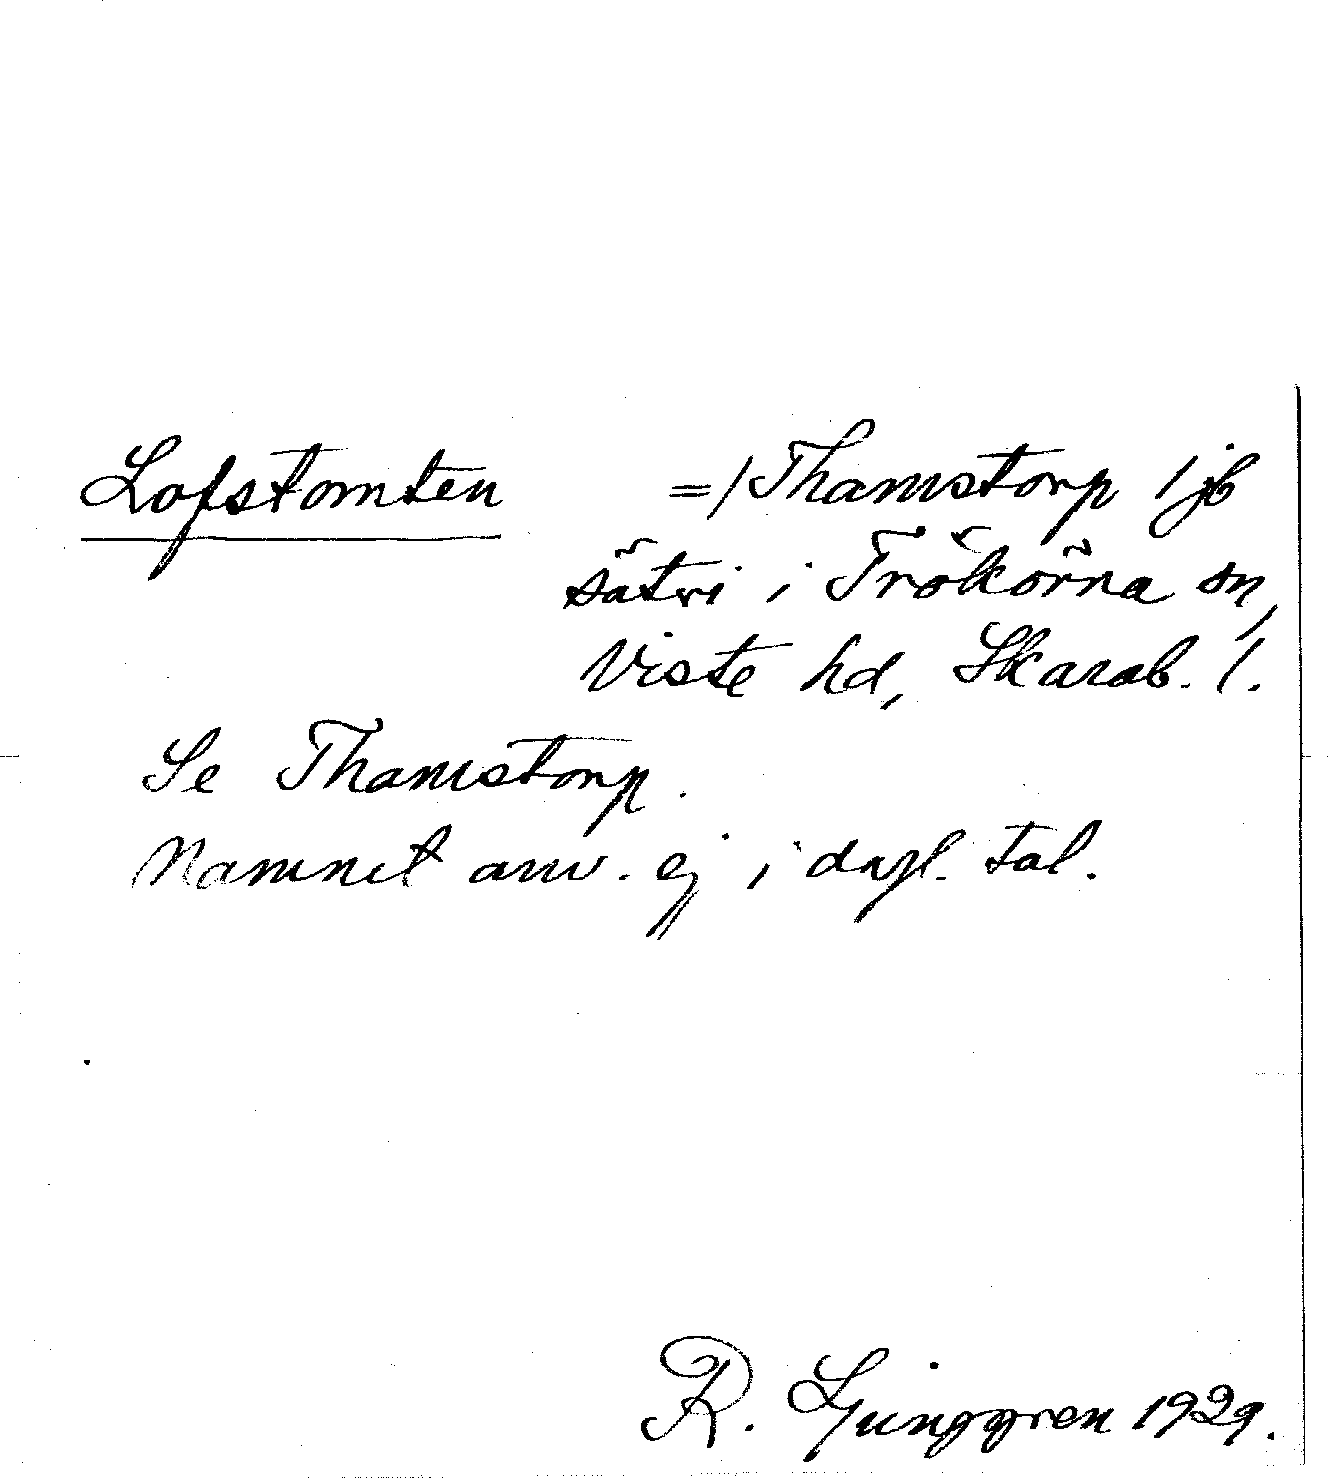 Lofstomten =/Thamstorp / jb
sätri i Trökörna sn,
Viste hd, Skarab. l.
Se Thamstorp.
Namnet anv. ej i dagl. tal.
R. Ljunggren 1929.